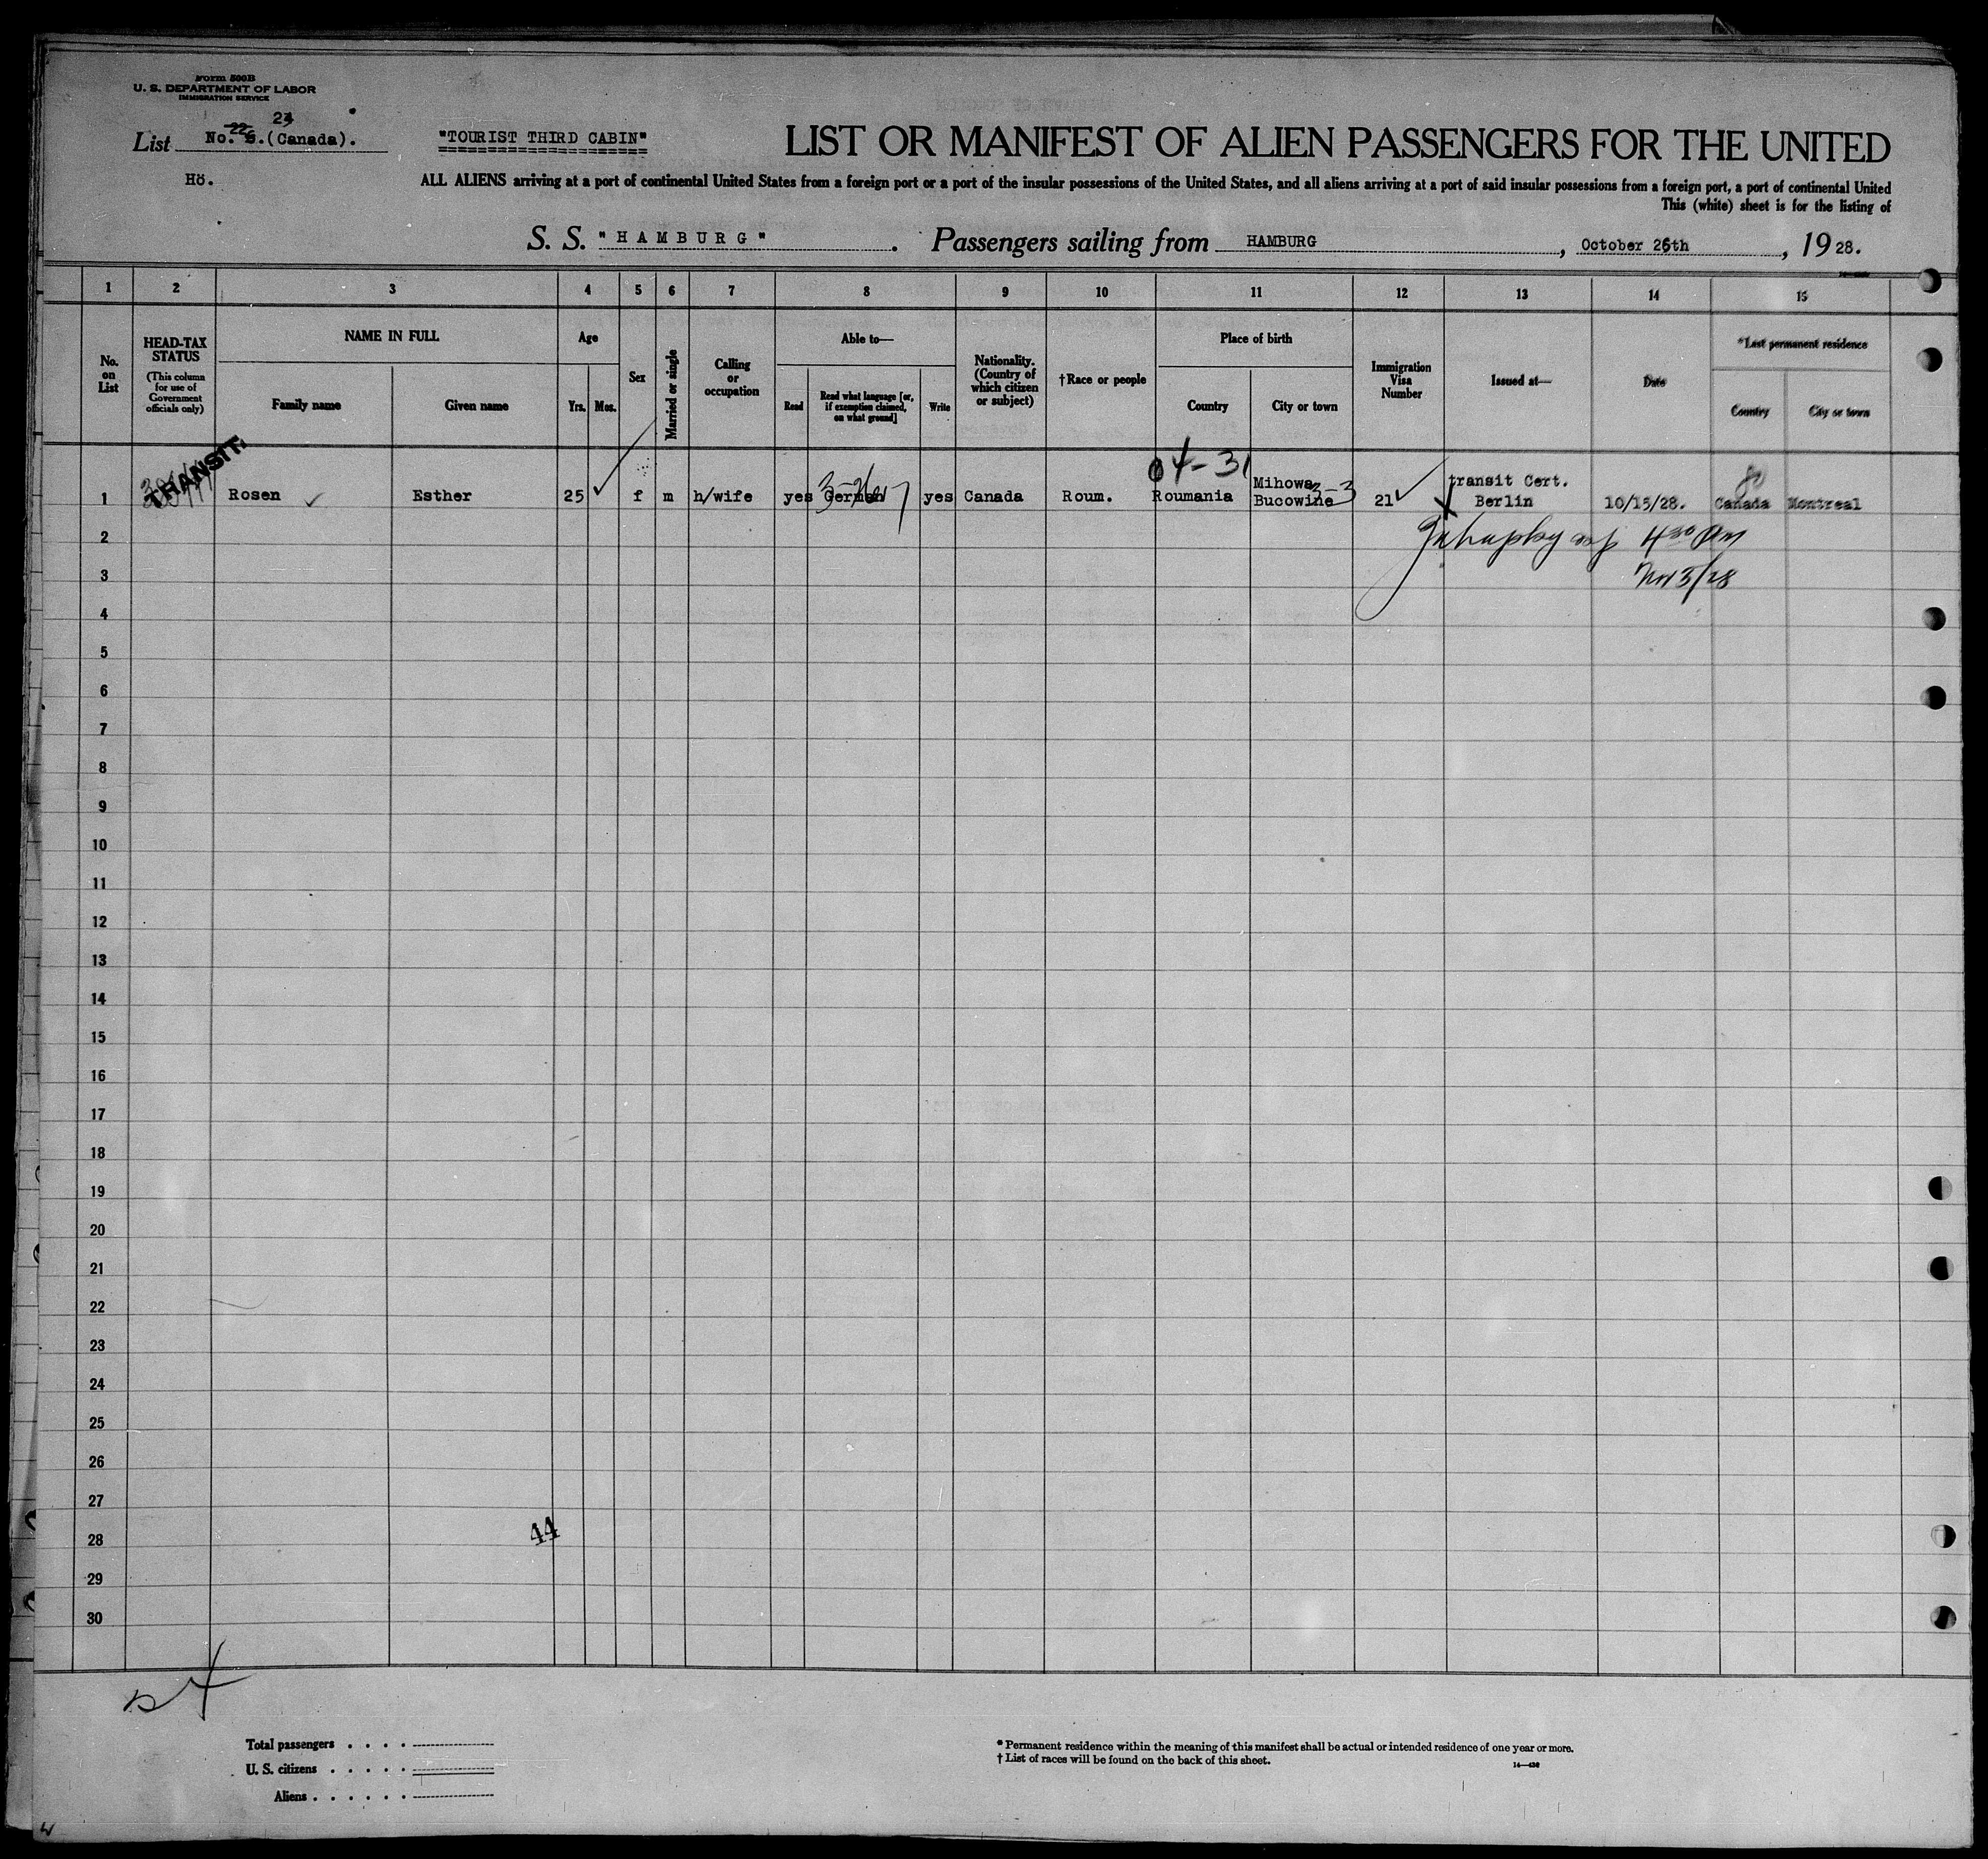 Form 500B
U. S. DEPARTMENT OF LABOR
IMMIGRATION SERVICE
List No. (Canada).
Hö.
"TOURIST THIRD CABIN"
LIST OR MANIFEST OF ALIEN PASSENGERS FOR THE UNITED
ALL ALIENS arriving at a port of continental United States from a foreign port or a port of the insular possessions of the United States, and all aliens arriving at a port of said insular possessions from a foreign port, a port of continental United
This (white) sheet is for the listing of
S. S. "HAMBURG". Passengers sailing from HAMBURG, October 26th, 1928.
1 2 3 4 5 6 7 8 9 10 11 12 13 14 15
No. on List
HEAD-TAX STATUS
(This column for use of Government officials only)
NAME IN FULL
Family name Given name
Age
Yrs. Mos.
Sex
Married or single
Calling or occupation
Able to—
Read
Read what language [or, if exemption claimed, on what ground]
Write
Nationality. (Country of which citizen or subject)
†Race or people
Place of birth
Country City or town
Immigration Visa Number
Issued at—
Date
*Last permanent residence
Country City or town
TRANSIT.
04-31
1 Rosen Esther 25 f m h/wife yes German yes Canada Roum. Roumania Mihowa Bucowine 3-3 21 transit Cert. Berlin 10/15/28. Canada Montreal
2 4 30 Pm
3 Nov 3/28
4
5
6
7
8
9
10
11
12
13
14
15
16
17
18
19
20
21
22
23
24
25
26
27
28
44
29
30
Total passengers . . . .
U. S. citizens . . . . .
Aliens . . . . . .
* Permanent residence within the meaning of this manifest shall be actual or intended residence of one year or more.
† List of races will be found on the back of this sheet.